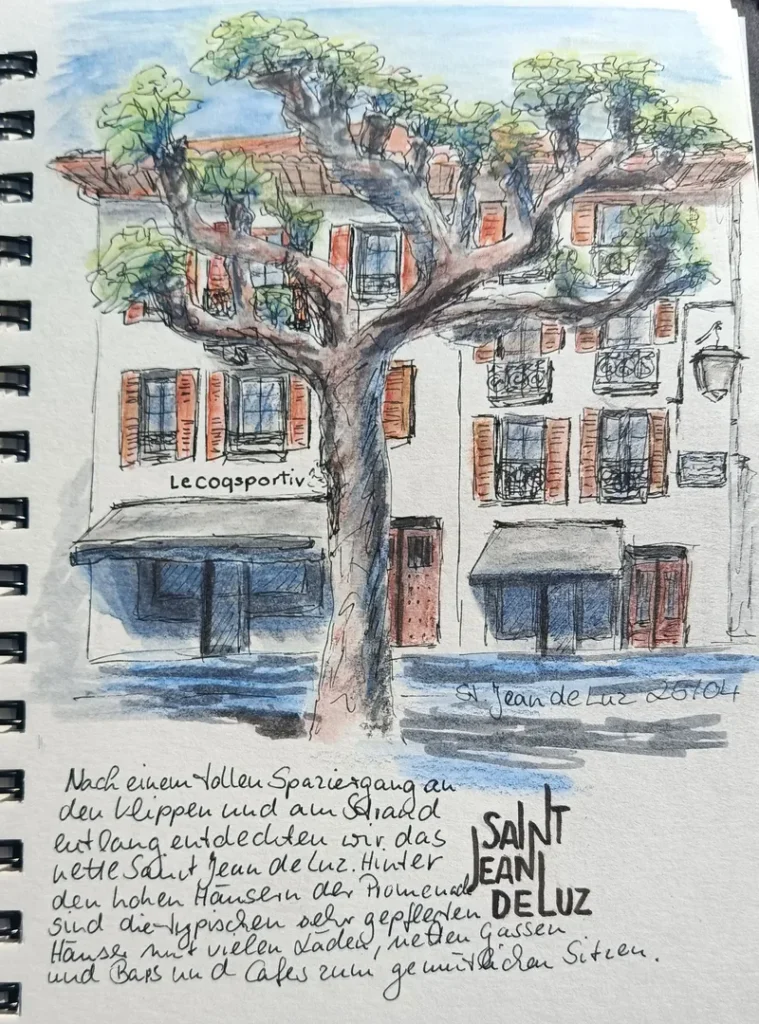 Le coqsportiv
St Jean de Luz 25/04
Nach einem tollen Spaziergang an
den Klippen und am Strand
entlang entdeckten wir das
nette Saint Jean de Luz. Hinter
den hohen Häusern der Promenade
sind die typischen sehr gepflegten
Häuser mit vielen Läden, netten Gassen
und Bars und Cafes zum gemütlichen Sitzen.
SAINT
JEAN
DE LUZ